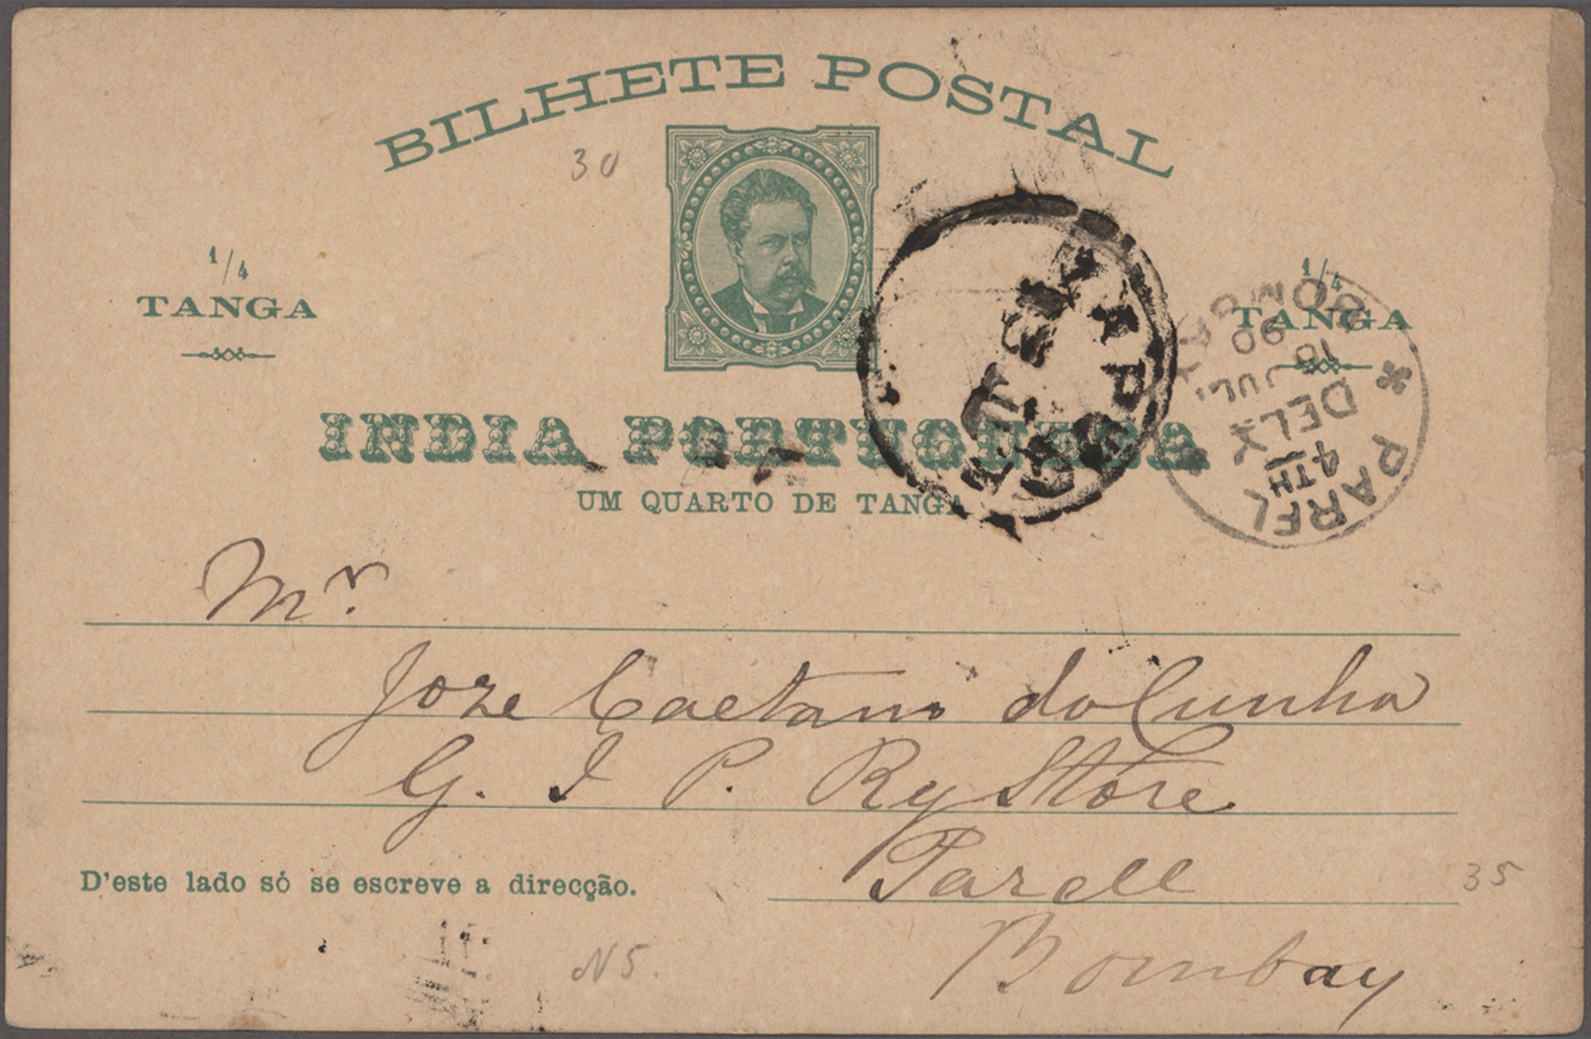 BILHETE POSTAL
30
1/4
TANGA
1/4
TANGA
INDIA PORTUGUEZA
UM QUARTO DE TANGA
MAPUÇA
BOMBAY
90
18 JUL.
DELY
4TH
PAREL
Mr.
Joze Caetano da Cunha
G. I. P. Ry Store
Parell
Bombay
D'este lado só se escreve a direcção.
35
N5.